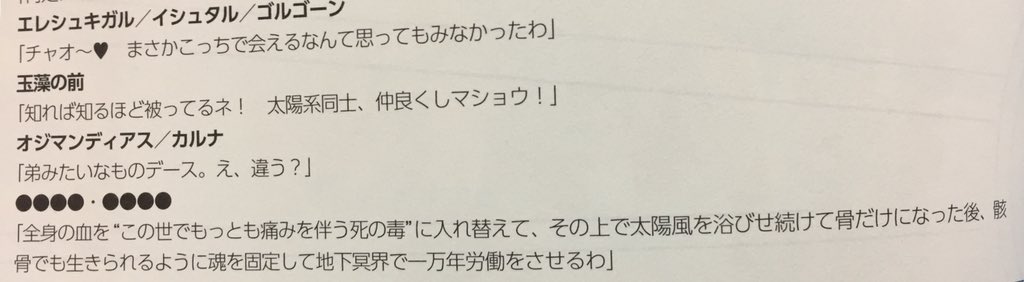 エレシュキガル／イシュタル／ゴルゴーン
「チャオ～♥　まさかこっちで会えるなんて思ってもみなかったわ」
玉藻の前
「知れば知るほど被ってるネ！　太陽系同士、仲良くしマショウ！」
オジマンディアス／カルナ
「弟みたいなものデース。え、違う？」
●●●●・●●●●
「全身の血を“この世でもっとも痛みを伴う死の毒”に入れ替えて、その上で太陽風を浴びせ続けて骨だけになった後、骸
骨でも生きられるように魂を固定して地下冥界で一万年労働をさせるわ」